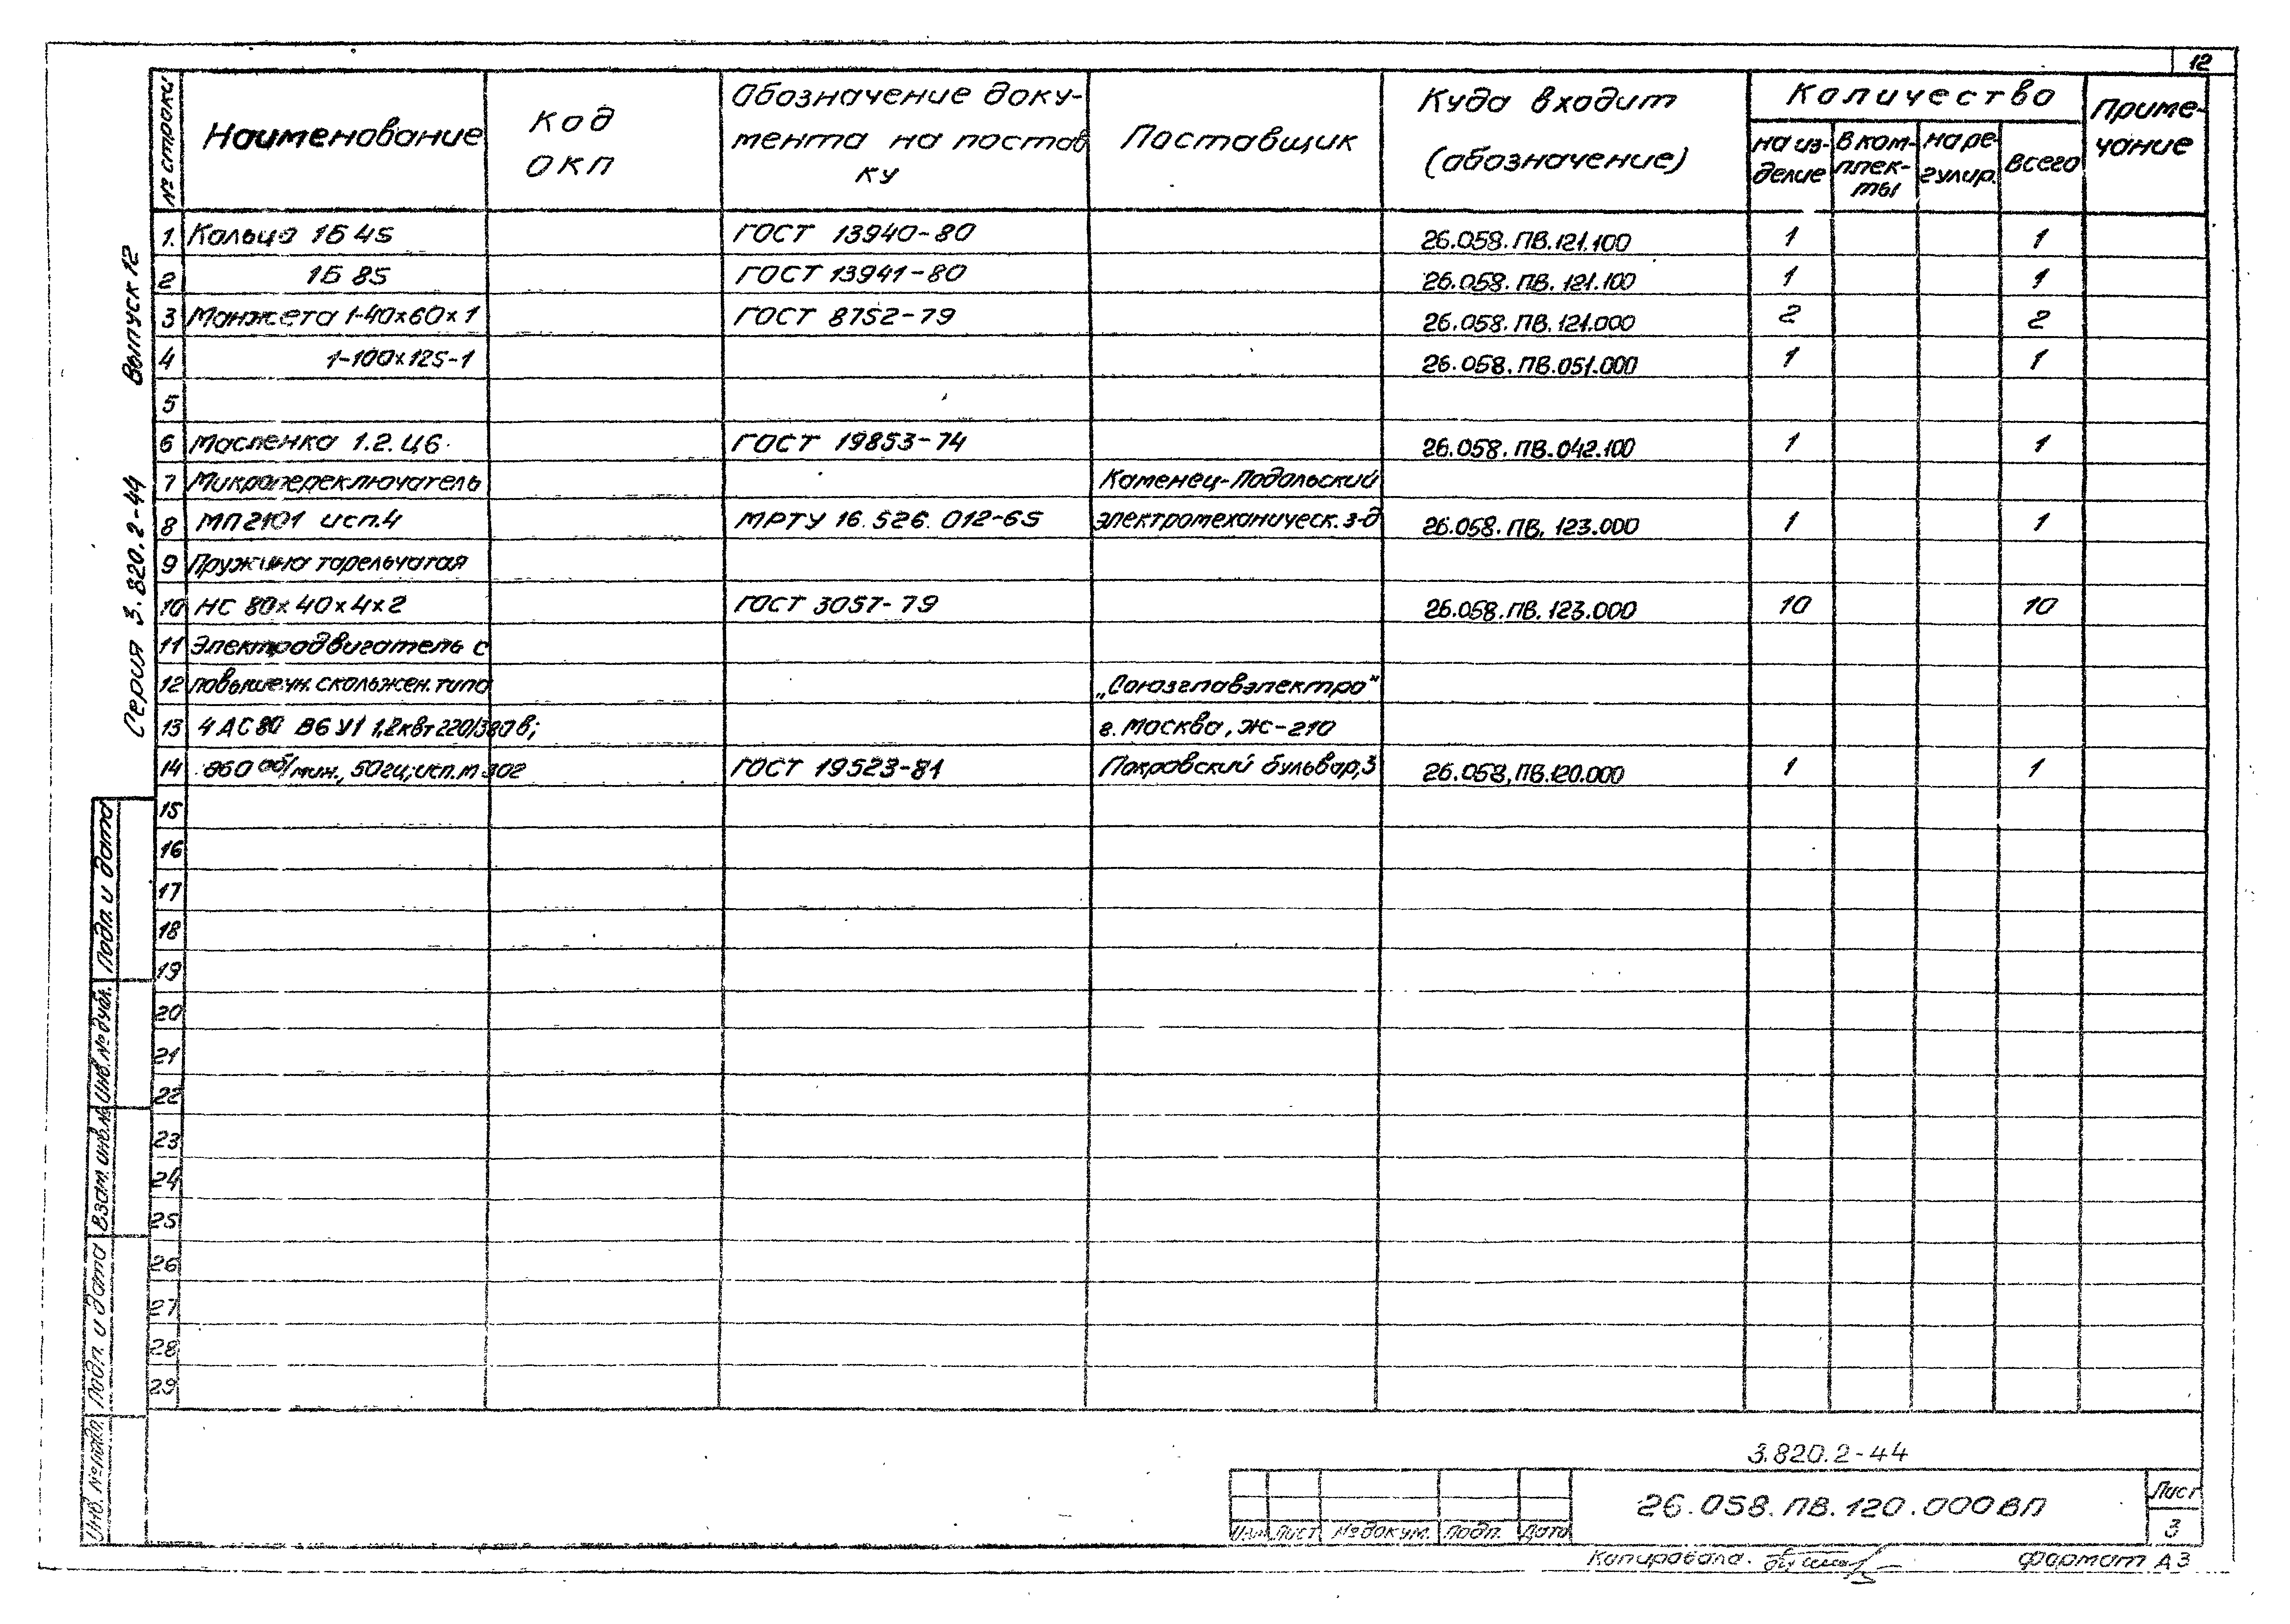 12
№ строки
Наименование
Код
ОКП
Обозначение доку-
мента на постав
ку
Поставщик
Куда входит
(обозначение)
Количество
на из-
делие
В ком-
плек-
ты
на ре-
гулир.
всего
Приме-
чание
1. Кольцо 1Б 45 ГОСТ 13940-80 26.058.ПВ.121.100 1 1
2 1Б 85 ГОСТ 13941-80 26.058.ПВ.121.100 1 1
3 Манжета 1-40х60х1 ГОСТ 8752-79 26.058.ПВ.121.000 2 2
4 1-100х125-1 26.058.ПВ.051.000 1 1
5
6 Масленка 1.2.Ц6. ГОСТ 19853-74 26.058.ПВ.042.100 1 1
7 Микропереключатель Каменец-Подольский
8 МП2101 исп.4 МРТУ 16.526.012-65 электромеханическ. з-д 26.058.ПВ.123.000 1 1
9 Пружина тарельчатая
10 НС 80х40х4х2 ГОСТ 3057-79 26.058.ПВ.123.000 10 10
11 Электродвигатель с
12 повышечн. скольжен. типа „Союзглавэлектро"
13 4АС80 В6У1 1,2квт 220/380в; г. Москва, Ж-210
14 860 об/мин., 50гц; исп. М302 ГОСТ 19523-81 Покровский бульвар,3 26.058.ПВ.120.000 1 1
15
16
17
18
19
20
21
22
23
24
25
26
27
28
29
Серия 3.820.2-44 Выпуск 12
Подп. и дата
Инв. № дубл.
Взам. инв. №
Подп. и дата
Инв. № подл.
3.820.2-44
26.058.ПВ.120.000ВП
Лист
3
Изм Лист № докум. Подп. Дата
Копировала.
Формат А3